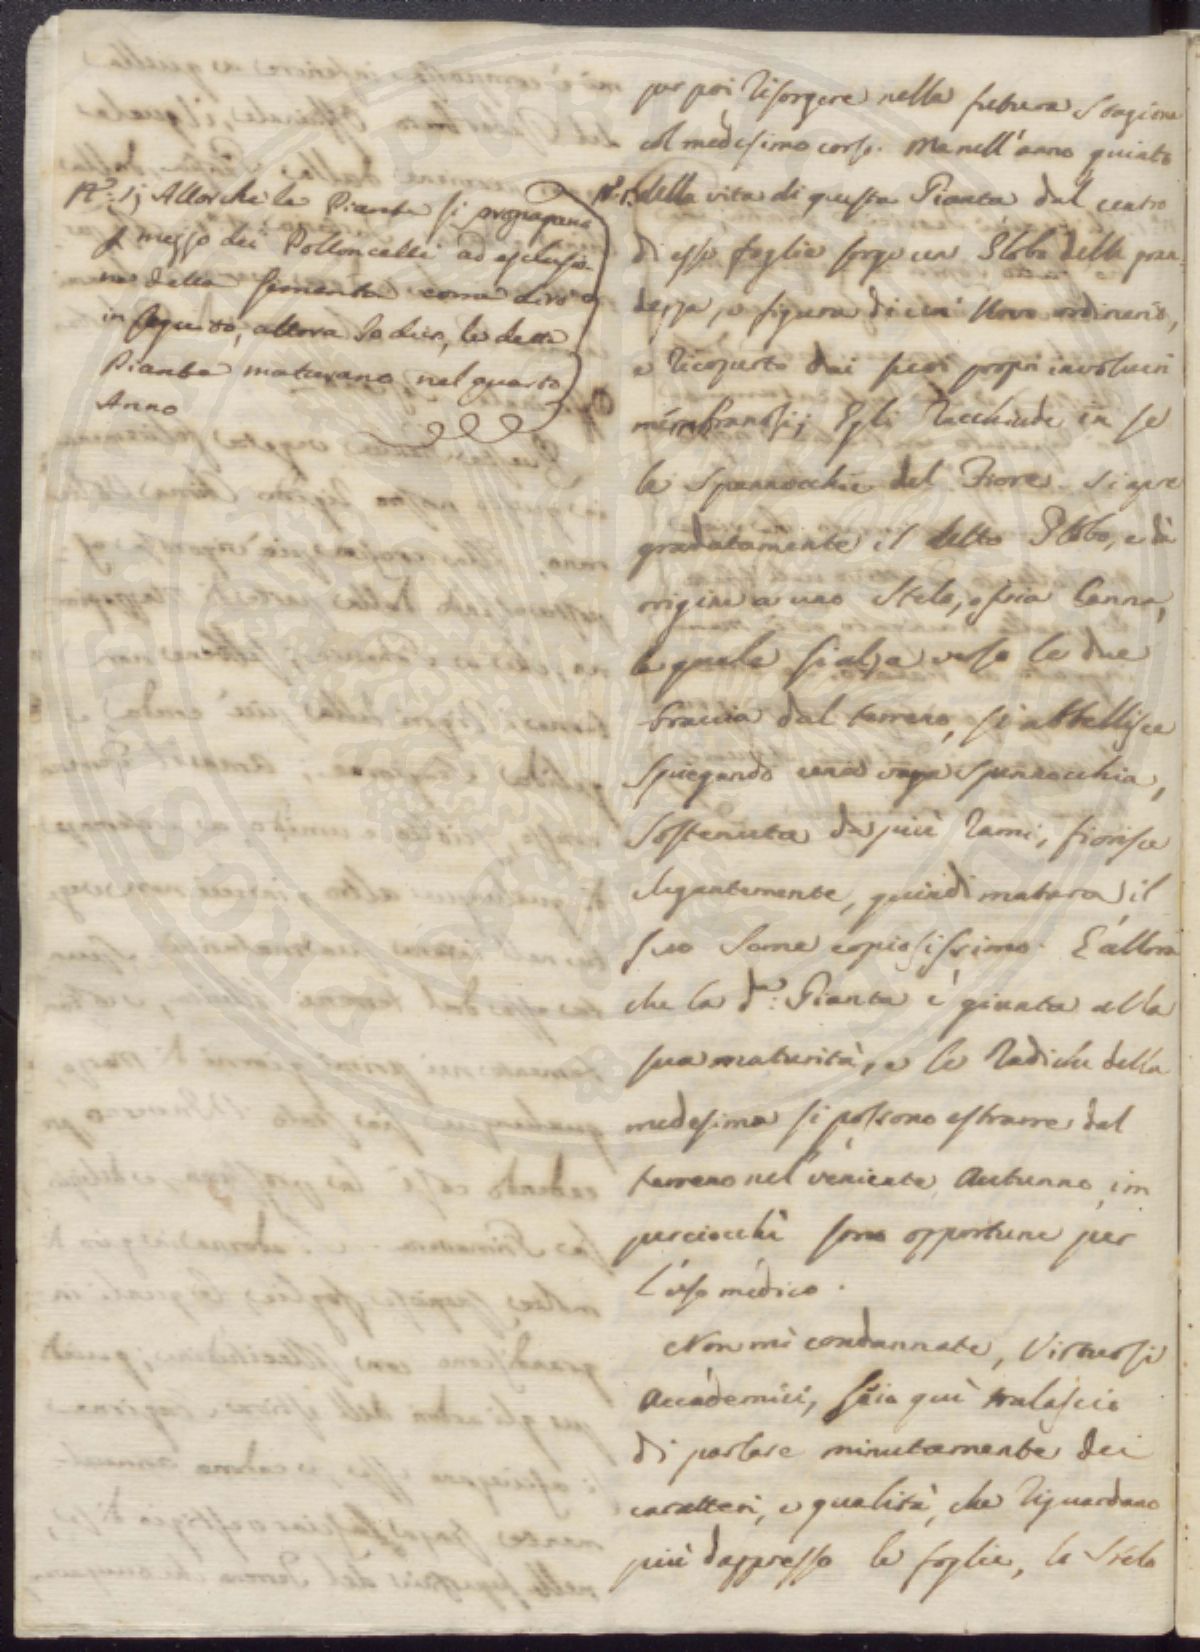 N.° 1; Allorchè le Piante si propagano
p mezzo dei Polloncelli ad esclusio-
ne della semente come dirò
in seguito, allora Io dico, le dette
Piante maturano nel quarto
Anno
per poi risorgere nella futura Stagione
col medesimo corso. Ma nell'anno quinto
N.° 1. della vita di questa Pianta dal centro
di esse foglie sorge un Globo della gran-
dezza, e figura di un' Uovo ordinario,
e ricoperto dai suoi propri involucri
membranosi; Egli racchiude in se
la Spannocchia del Fiore. Si apre
gradatamente il detto Globo, e dà
origine a uno Stelo, ossia Canna,
la quale si alza verso le due
braccia dal terreno, si abbellisce
spiegando una vaga spannocchia,
sostenuta da più rami, fiorisce
elegantemente, quindi matura il
suo Seme copiosissimo. E allora
che la d.ª Pianta è giunta alla
sua maturità, e le Radiche della
medesima si possono estrarre dal
terreno nel veniente Autunno, im
perciocchè sono opportune per
l'uso medico.
Non mi condannate, Virtuosi
Accademici, s'io quì tralascio
di parlare minutamente dei
caratteri, e qualità, che riguardano
più dappresso le foglie, lo Stelo